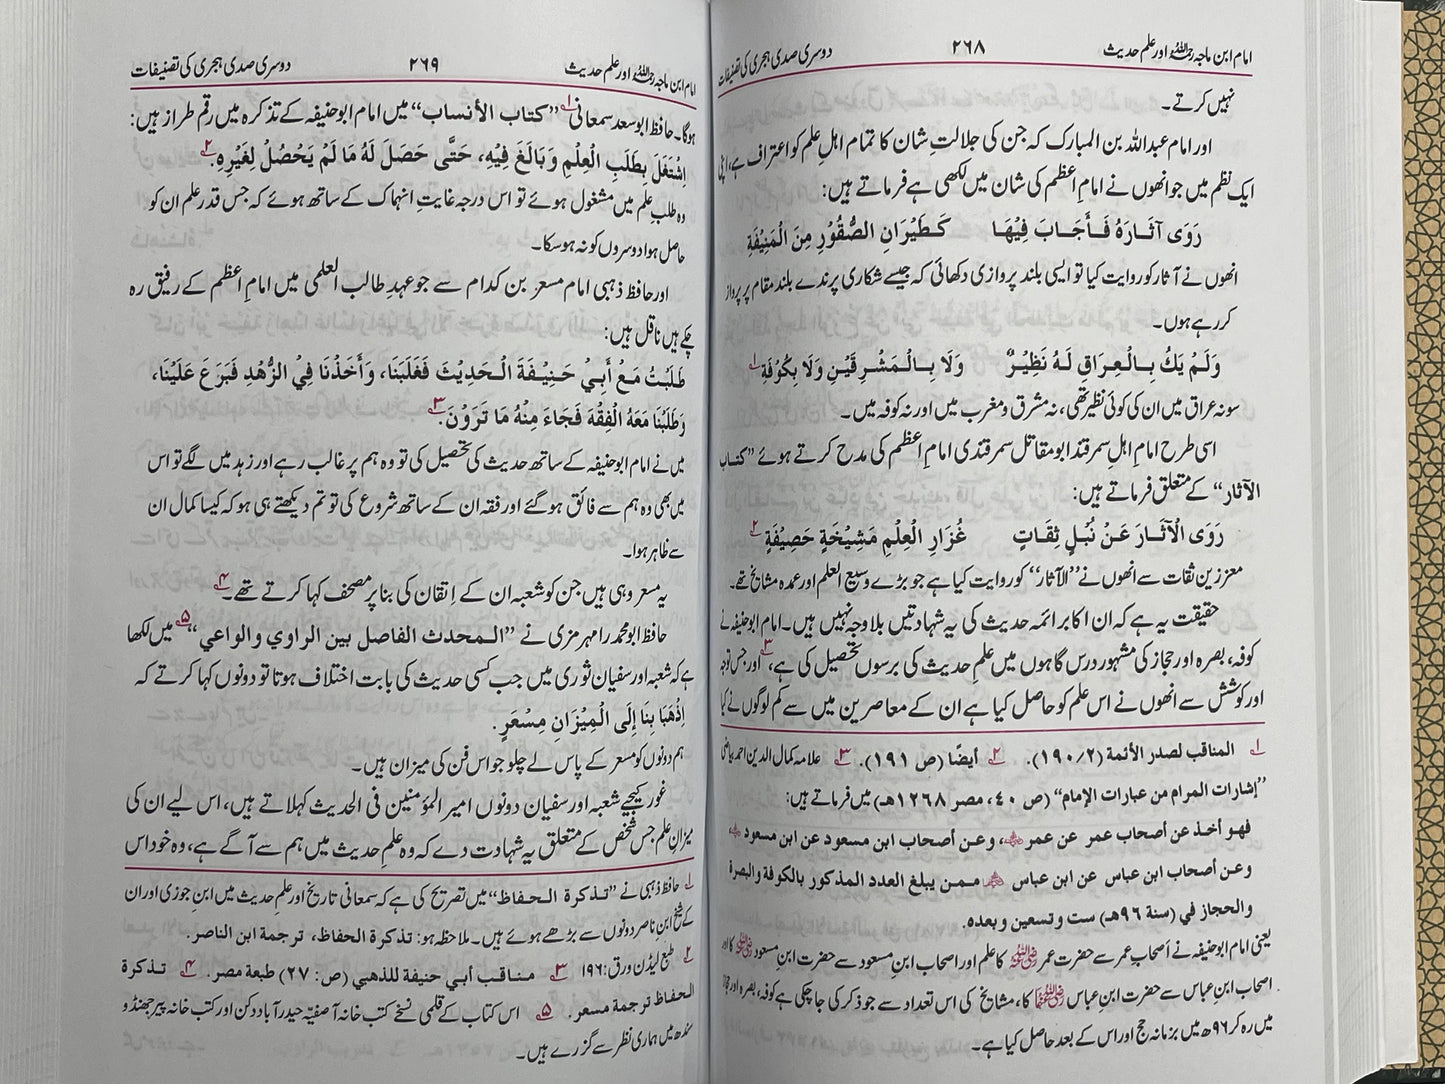 امام ابن ماجہ رحمہ اللہ اور علم حدیث ۲۶۸ دوسری صدی ہجری کی تصنیفات
نہیں کرتے۔
اور امام عبداللہ بن المبارک کہ جن کی جلالتِ شان کا تمام اہلِ علم کو اعتراف ہے، اپنی
ایک نظم میں جو انھوں نے امامِ اعظم کی شان میں لکھی ہے فرماتے ہیں:
رَوَى آثَارَهُ فَأَجَابَ فِيْهَا كَطَيْرَانِ الصُّقُوْرِ مِنَ الْمَنِيْفَةِ
انھوں نے آثار کو روایت کیا تو ایسی بلند پروازی دکھائی کہ جیسے شکاری پرندے بلند مقام پر پرواز
کر رہے ہوں۔
وَلَمْ يَكُ بِالْعِرَاقِ لَهُ نَظِيْرٌ وَلَا بِالْمَشْرِقَيْنِ وَلَا بِكُوْفَةِ ۱
سو نہ عراق میں ان کی کوئی نظیر تھی، نہ مشرق و مغرب میں اور نہ کوفہ میں۔
اسی طرح امام اہلِ سمرقند ابو مقاتل سمرقندی امامِ اعظم کی مدح کرتے ہوئے ”کتاب
الآثار“ کے متعلق فرماتے ہیں:
رَوَى الْآثَارَ عَنْ نُبْلٍ ثِقَاتٍ غُزَارِ الْعِلْمِ مَشِيْخَةٍ حَصِيْفَةٍ ۲
معززین ثقات سے انھوں نے ”الآثار“ کو روایت کیا ہے جو بڑے وسیع العلم اور عمدہ مشائخ تھے۔
حقیقت یہ ہے کہ ان اکابر ائمہ حدیث کی یہ شہادتیں بلاوجہ نہیں ہیں۔ امام ابوحنیفہ نے
کوفہ، بصرہ اور حجاز کی مشہور درس گاہوں میں علمِ حدیث کی برسوں تحصیل کی ہے، ۳ اور جس توجہ
اور کوشش سے انھوں نے اس علم کو حاصل کیا ہے ان کے معاصرین میں سے کم لوگوں نے کیا
۱ المناقب لصدر الأئمة (۲/۱۹۰). ۲ أيضًا (ص ۱۹۱). ۳ علامہ کمال الدین احمد بیاضی
”إشارات المرام من عبارات الإمام“ (ص ۴۰، مصر ۱۲۶۸هـ) میں فرماتے ہیں:
فهو أخذ عن أصحاب عمر عن عمر رضی اللہ عنہ، وعن أصحاب ابن مسعود عن ابن مسعود رضی اللہ عنہ
وعن أصحاب ابن عباس عن ابن عباس رضی اللہ عنہما ممن يبلغ العدد المذكور بالكوفة والبصرة
والحجاز في (سنة ۹۶هـ) ست وتسعين وبعده.
یعنی امام ابوحنیفہ نے اَصحابِ عمر سے حضرت عمر رضی اللہ عنہ کا علم اور اصحاب ابنِ مسعود سے حضرت ابنِ مسعود رضی اللہ عنہ کا اور
اصحاب ابنِ عباس سے حضرت ابنِ عباس رضی اللہ عنہما کا، مشایخ کی اس تعداد سے جو ذکر کی جاچکی ہے کوفہ، بصرہ اور حجاز
میں رہ کر ۹۶ھ میں بزمانہ حج اور اس کے بعد حاصل کیا ہے۔
امام ابن ماجہ رحمہ اللہ اور علم حدیث ۲۶۹ دوسری صدی ہجری کی تصنیفات
ہوگا۔ حافظ ابوسعد سمعانی ۱ ”كتاب الأنساب“ میں امام ابوحنیفہ کے تذکرہ میں رقم طراز ہیں:
اِشْتَغَلَ بِطَلَبِ الْعِلْمِ وَبَالَغَ فِيْهِ، حَتَّى حَصَلَ لَهُ مَا لَمْ يَحْصُلْ لِغَيْرِهِ. ۲
وہ طلبِ علم میں مشغول ہوئے تو اس درجہ غایتِ انہماک کے ساتھ ہوئے کہ جس قدر علم ان کو
حاصل ہوا دوسروں کو نہ ہوسکا۔
اور حافظ ذہبی امام مسعر بن کدام سے جو عہدِ طالب العلمی میں امامِ اعظم کے رفیق رہ
چکے ہیں ناقل ہیں:
طَلَبْتُ مَعَ أَبِيْ حَنِيْفَةَ الْحَدِيْثَ فَغَلَبَنَا، وَأَخَذْنَا فِيْ الزُّهْدِ فَبَرَعَ عَلَيْنَا،
وَطَلَبْنَا مَعَهُ الْفِقْهَ فَجَاءَ مِنْهُ مَا تَرَوْنَ. ۳
میں نے امام ابوحنیفہ کے ساتھ حدیث کی تحصیل کی تو وہ ہم پر غالب رہے اور زہد میں لگے تو اس
میں بھی وہ ہم سے فائق ہوگئے اور فقہ ان کے ساتھ شروع کی تو تم دیکھتے ہی ہو کہ کیسا کمال ان
سے ظاہر ہوا۔
یہ مسعر وہی ہیں جن کو شعبہ ان کے اِتقان کی بنا پر مصحف کہا کرتے تھے۔ ۴
حافظ ابو محمد رامہرمزی نے ”المحدث الفاصل بين الراوي والواعي“ ۵ میں لکھا
ہے کہ شعبہ اور سفیان ثوری میں جب کسی حدیث کی بابت اختلاف ہوتا تو دونوں کہا کرتے کہ
اِذْهَبَا بِنَا إِلَى الْمِيْزَانِ مِسْعَرٍ.
ہم دونوں کو مسعر کے پاس لے چلو جو اس فن کی میزان ہیں۔
غور کیجیے شعبہ اور سفیان دونوں امیر المؤمنین فی الحدیث کہلاتے ہیں، اس لیے ان کی
میزانِ علم جس شخص کے متعلق یہ شہادت دے کہ وہ علمِ حدیث میں ہم سے آگے ہے، وہ خود اس
۱ حافظ ذہبی نے ”تذكرة الحفاظ“ میں تصریح کی ہے کہ سمعانی تاریخ اور علمِ حدیث میں ابنِ جوزی اور ان
کے شیخ ابنِ ناصر دونوں سے بڑھے ہوئے ہیں۔ ملاحظہ ہو: تذكرة الحفاظ، ترجمة ابن الناصر.
۲ طبع لیڈن ورق: ۱۹۶ ۳ مناقب أبي حنيفة للذهبي (ص: ۲۷) طبعة مصر. ۴ تذكرة
الحفاظ ترجمة مسعر. ۵ اس کتاب کے قلمی نسخے کتب خانہ آصفیہ حیدرآباد دکن اور کتب خانہ پیر جھنڈو
سندھ میں ہماری نظر سے گزرے ہیں۔